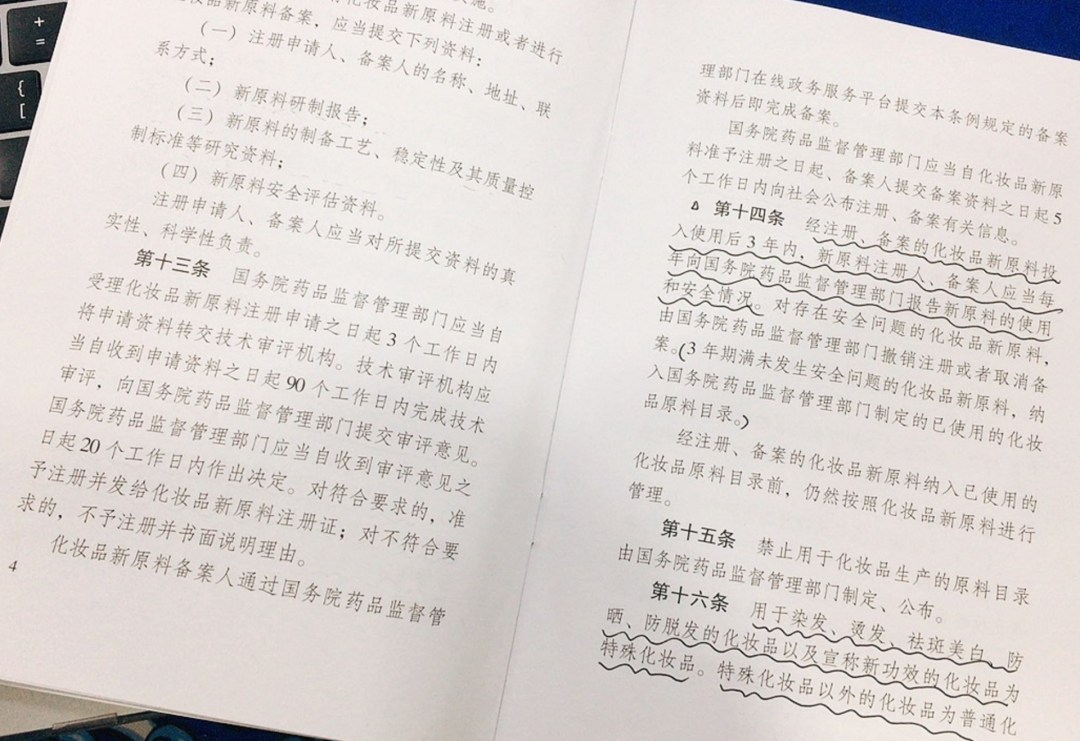 化妆品新原料注册或者进行
化妆品新原料备案，应当提交下列资料：
（一）注册申请人、备案人的名称、地址、联
系方式；
（二）新原料研制报告；
（三）新原料的制备工艺、稳定性及其质量控
制标准等研究资料；
（四）新原料安全评估资料。
注册申请人、备案人应当对所提交资料的真
实性、科学性负责。
第十三条 国务院药品监督管理部门应当自
受理化妆品新原料注册申请之日起3个工作日内
将申请资料转交技术审评机构。技术审评机构应
当自收到申请资料之日起90个工作日内完成技术
审评，向国务院药品监督管理部门提交审评意见。
国务院药品监督管理部门应当自收到审评意见之
日起20个工作日内作出决定。对符合要求的，准
予注册并发给化妆品新原料注册证；对不符合要
求的，不予注册并书面说明理由。
化妆品新原料备案人通过国务院药品监督管
4
理部门在线政务服务平台提交本条例规定的备案
资料后即完成备案。
国务院药品监督管理部门应当自化妆品新原
料准予注册之日起、备案人提交备案资料之日起5
个工作日内向社会公布注册、备案有关信息。
第十四条 经注册、备案的化妆品新原料投
入使用后3年内，新原料注册人、备案人应当每
年向国务院药品监督管理部门报告新原料的使用
和安全情况。对存在安全问题的化妆品新原料，
由国务院药品监督管理部门撤销注册或者取消备
案。(3年期满未发生安全问题的化妆品新原料，纳
入国务院药品监督管理部门制定的已使用的化妆
品原料目录。)
经注册、备案的化妆品新原料纳入已使用的
化妆品原料目录前，仍然按照化妆品新原料进行
管理。
第十五条 禁止用于化妆品生产的原料目录
由国务院药品监督管理部门制定、公布。
第十六条 用于染发、烫发、祛斑美白、防
晒、防脱发的化妆品以及宣称新功效的化妆品为
特殊化妆品。特殊化妆品以外的化妆品为普通化